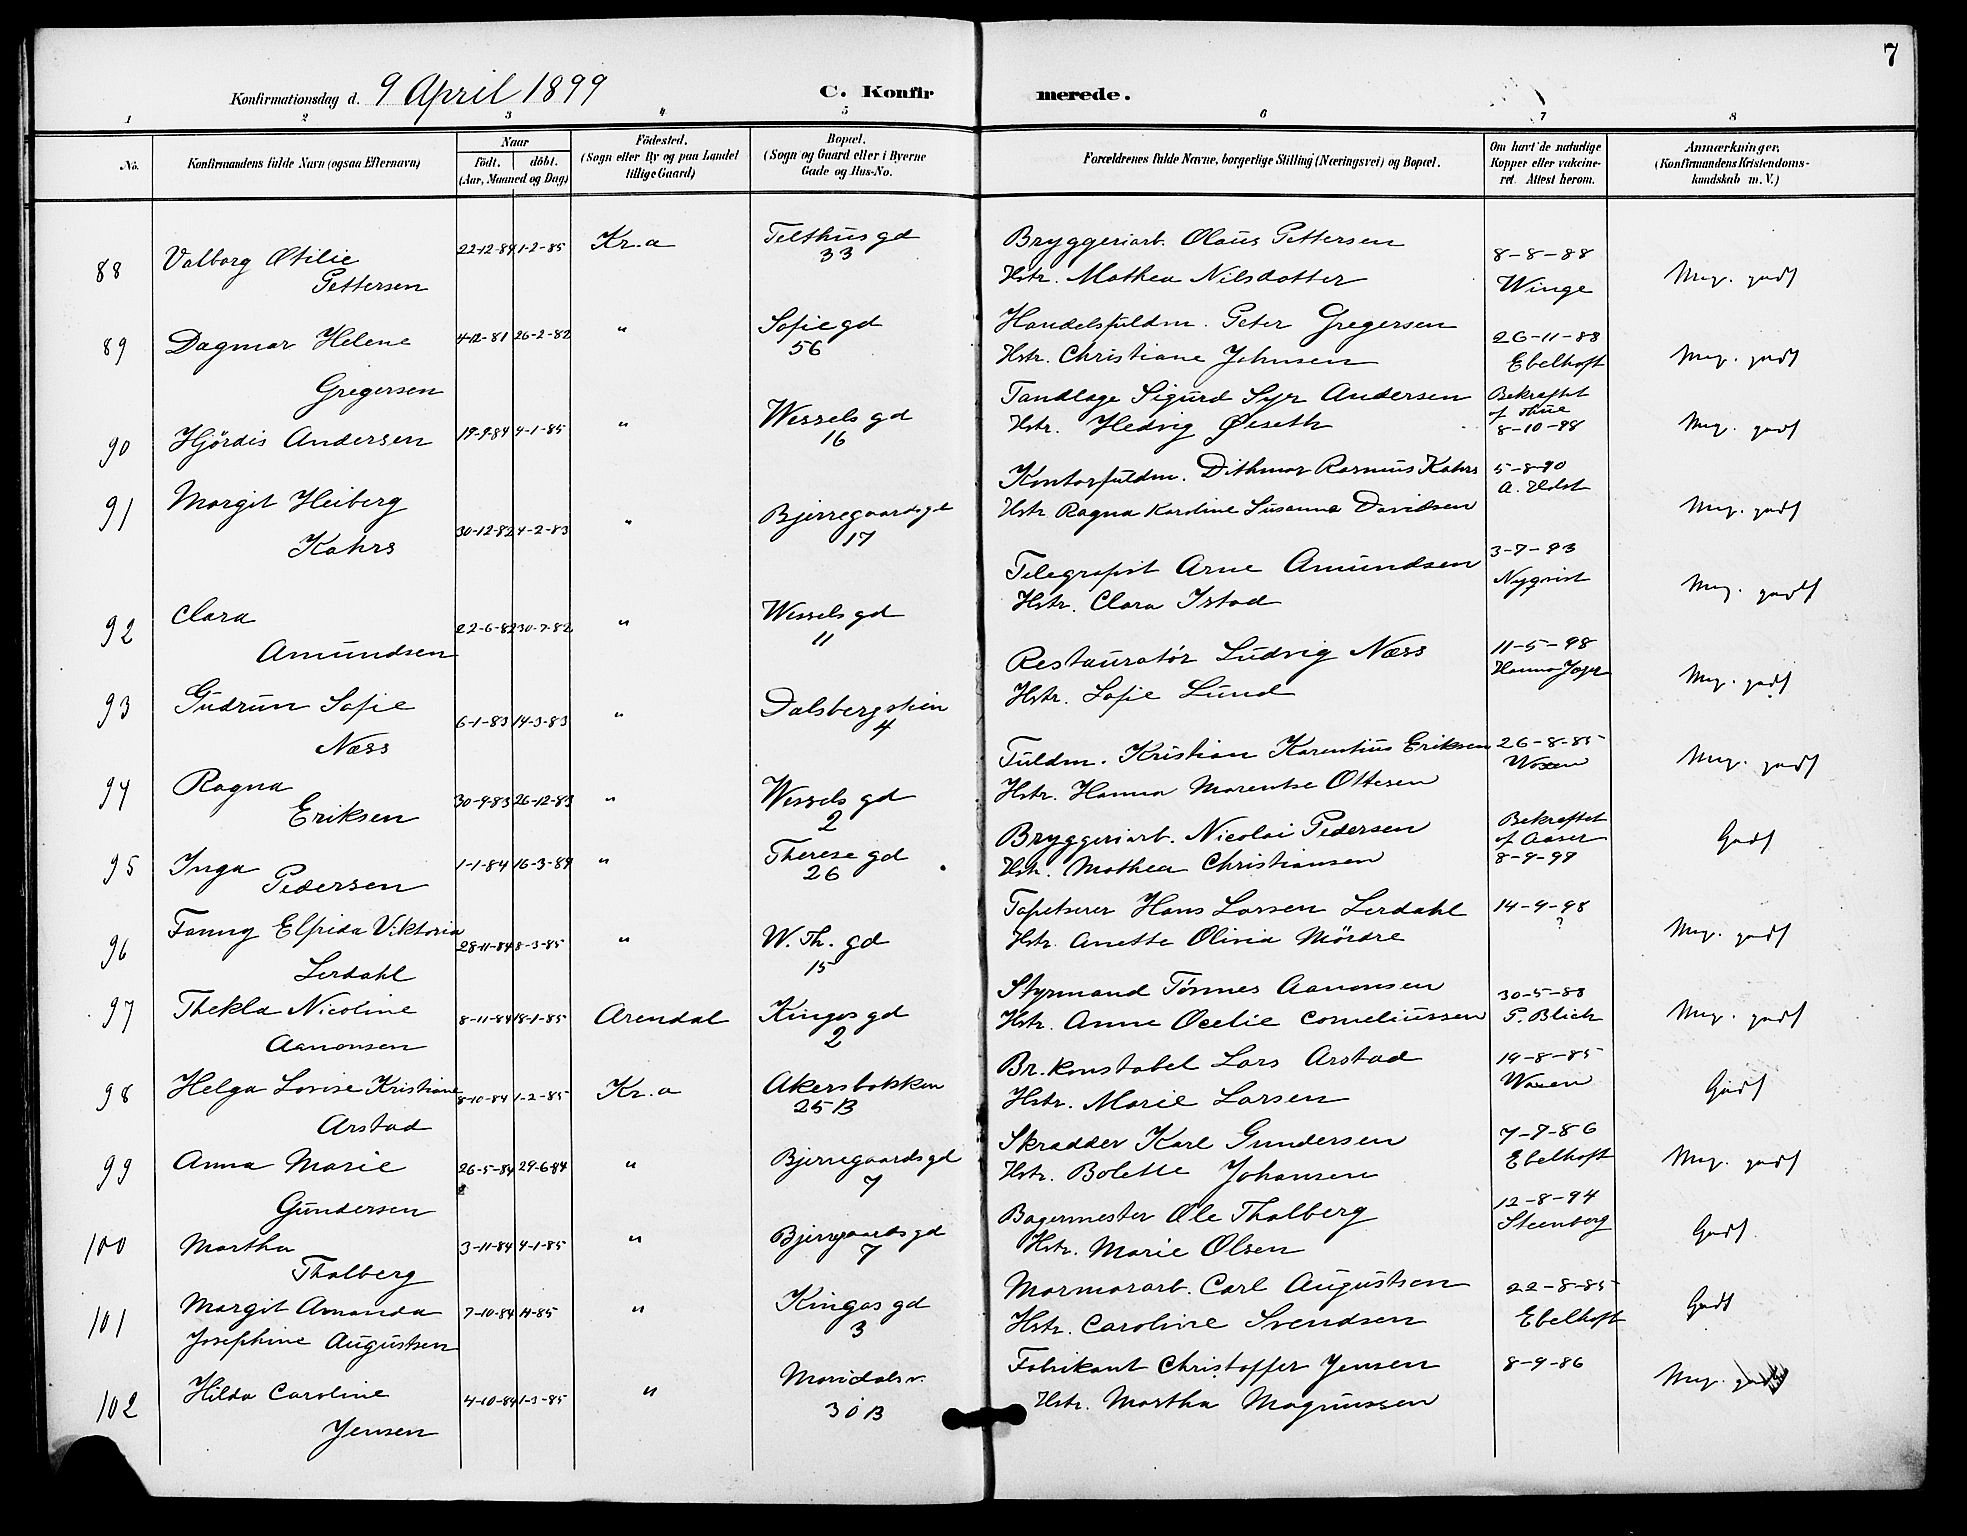 7
Konfirmationsdag d. 9 April 1899 C. Konfir merede.
1 2 3 4 5 6 7 8
No. Konfirmandens fulde Navn (ogsaa Efternavn) Naar födt. döbt. (Aar, Maaned og Dag) Födested. (Sogn eller By og paa Landet tillige Gaard) Bopæl. (Sogn og Gaard eller i Byerne Gade og Hus-No. Forældrenes fulde Navne, borgerlige Stilling (Næringsvei) og Bopæl. Om havt de naturlige Kopper eller vakcineret. Attest herom. Anmærkninger. (Konfirmandens Kristendomskundskab m. V.)
88 Valborg Otilie Pettersen 22-12-84 1-2-85 Kr.a Telthusgd 33 Bryggeriarb. Olaus Pettersen
Hstr. Mathea Nilsdotter 8-8-88 Winge Meg. godt
89 Dagmar Helene Gregersen 4-12-81 26-2-82 " Sofiegd 56 Handelsfuldm. Peter Gregersen
Hstr. Christiane Johnsen 26-11-88 Ebelhoft Meg. godt
90 Hjördis Andersen 19-9-84 4-1-85 " Wesselsgd 16 Tandlæge Sigurd Syr Andersen
Hstr. Hedvig Øiseth Bekræftet af 8-10-98 Meg. godt
91 Margit Heiberg Kahrs 30-12-82 4-2-83 " Bjerregaardsgd 17 Kontorfuldm. Dithmar Rasmus Kahrs
Hstr Ragna Karoline Susanna Davidsen 5-8-90 A. Holst Meg. godt
92 Clara Amundsen 22-6-82 30-7-82 " Wesselsgd 11 Telegrafist Arne Amundsen
Hstr. Clara Istad 3-7-93 Nyqvist Meg. godt
93 Gudrun Sofie Næss 6-1-83 14-3-83 " Dalsbergstien 4 Restauratör Ludvig Næss
Hstr. Sofie Lund 11-5-98 Meg. godt
94 Ragna Eriksen 30-9-83 26-12-83 " Wessels gd 2 Fuldm. Kristian Karentius Eriksen
Hstr. Hanna Marentse Ottesen 26-8-85 Woxen Meg. godt
95 Inga Pedersen 1-1-84 16-3-84 " Therese gd 26 Bryggeriarb. Nicolai Pedersen
Hstr. Mathea Christiansen Bekræftet af Aaser 8-9-98 Godt
96 Fanny Elfrida Viktoria Lerdahl 28-11-84 8-3-85 " W. Th. gd 15 Tapetserer Hans Larsen Lerdahl
Hstr. Anette Olivia Mördre 14-9-98 ? Meg. godt
97 Thekla Nicoline Aanonsen 8-11-84 18-1-85 Arendal Kingos gd 2 Styrmand Tönnes Aanonsen
Hstr. Anne Ocelie Corneliussen 30-5-88 P. Blich Meg. godt
98 Helga Lovise Kristiane Arstad 8-10-84 1-2-85 Kr.a Akersbakken 25 B Br.konstabel Lars Arstad
Hstr. Marie Larsen 14-8-85 Woxen Godt
99 Anna Marie Gundersen 26-5-84 29-6-84 " Bjerregaardsgd 7 Skradder Karl Gundersen
Hstr. Bolette Johansen 7-9-86 Ebelhoft Meg. godt
100 Martha Thalberg 3-11-84 4-1-85 " Bjerregaardsgd 7 Bagermester Ole Thalberg
Hstr. Marie Olsen 12-8-94 Steenberg Godt.
101 Margit Amanda Josephine Augustsen 7-10-84 " Kingos gd 3 Marmorarb. Carl Augustsen
Hstr. Caroline Svendsen 22-8-85 Ebelhoft Godt
102 Hilda Caroline Jensen 4-10-84 1-3-85 " Maridalsv. 30 B Fabrikant Christoffer Jensen
Hstr. Martha Magnussen 8-9-86 Meg. godt